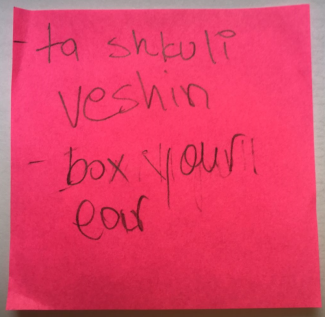 - ta shkuli
veshin
- box your
ear